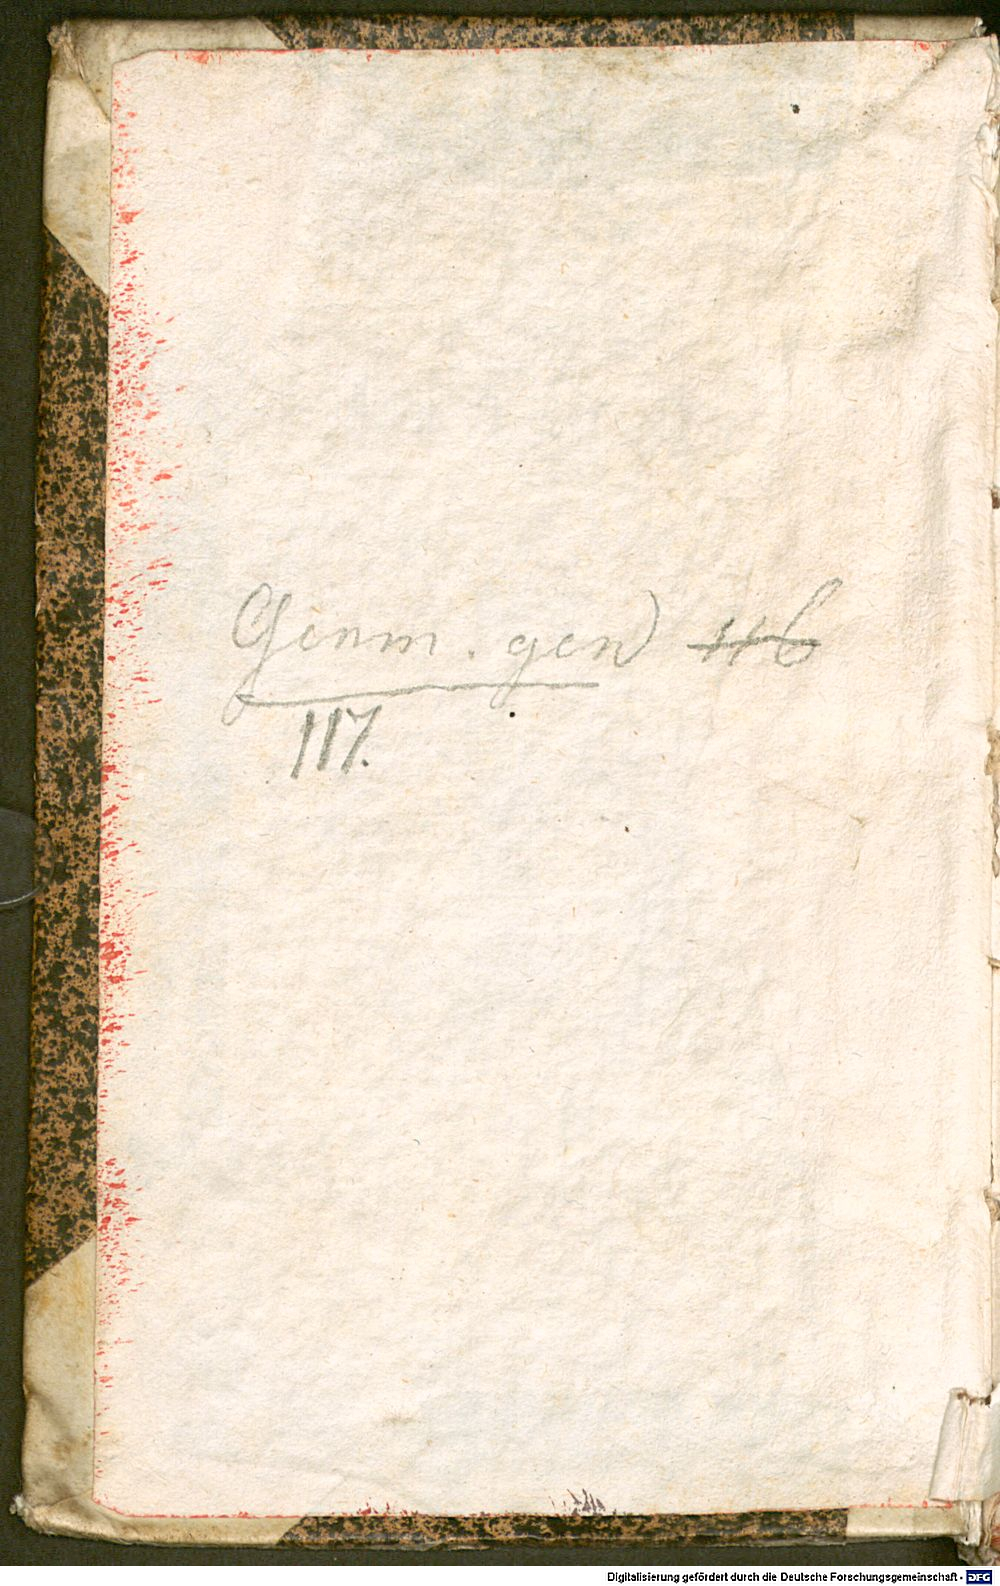 Germ. gen 116
117.
Digitalisierung gefördert durch die Deutsche Forschungsgemeinschaft - DFG